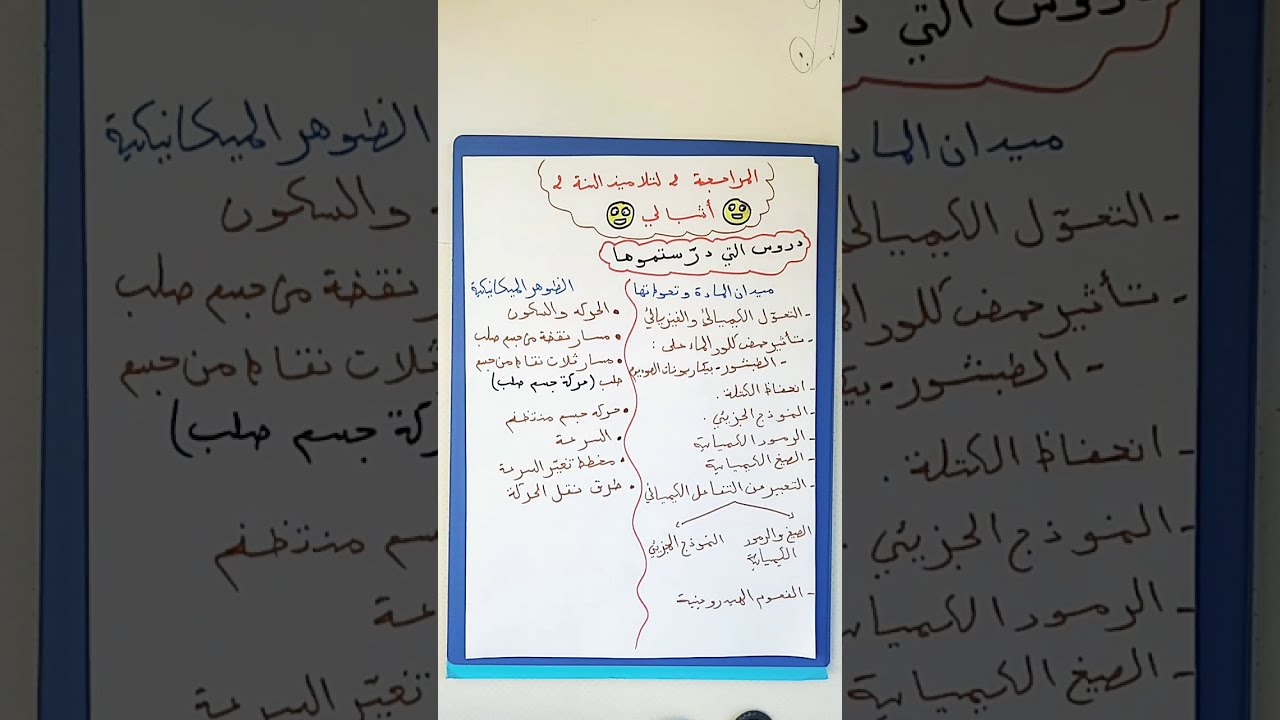 المراجعة 2 لتلاميذ السنة 2
أشبالي
دروس التي درّستموها
ميدان المادة و تحولاتها
- التحوّل الكيميائي والفيزيائي
- تأثير حمض كلور الماء على :
- الطبشور - بيكاربونات الصوديوم
- انحفاظ الكتلة .
- النموذج الجزيئي .
- الرموز الكيميائية
- الصيغ الكيميائية
- التعبير عن التفاعل الكيميائي
الصيغ والرموز الكيميائية
النموذج الجزيئي
- الفحوم الهيدروجينية
الظوهر الميكانيكية
• الحركة والسكون
• مسار نقطة من جسم صلب
• مسار ثلاث نقاط من جسم
صلب (حركة جسم صلب)
• حركة جسم منتظم
• السرعة
• مخطط تغيّر السرعة
• طرق نقل الحركة